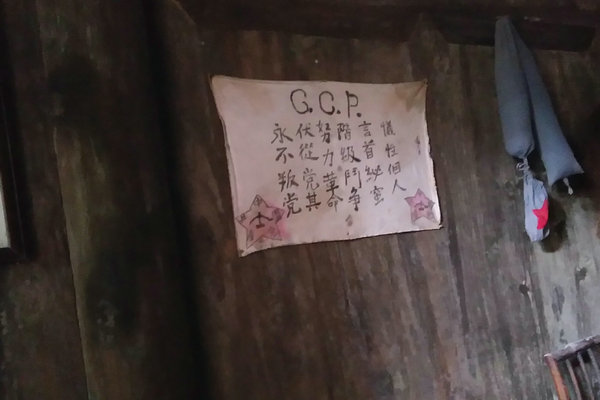 G.C.P.
犧牲個人
言首秘蜜
階級鬥争
努力革命
伏從党其
永不叛党